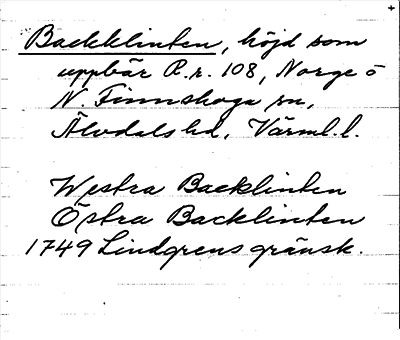 Backklinten, höjd som
uppbär R.r. 108, Norge o
N. Finnskoga sn,
Älvdals hd, Värml. l.
Westra Backlinten
Östra Backlinten
1749 Lindgrens gränsk.